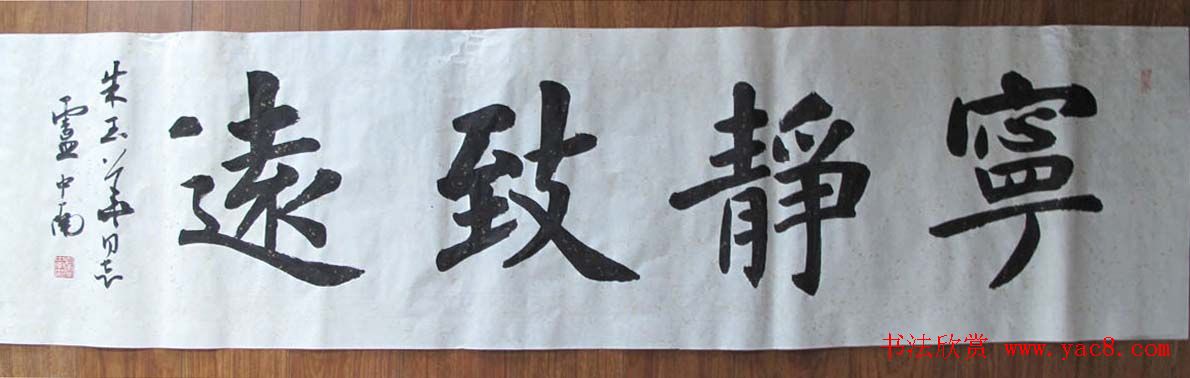 寧靜致遠
朱玉華同志
盧中南
书法欣赏 www.yac8.com